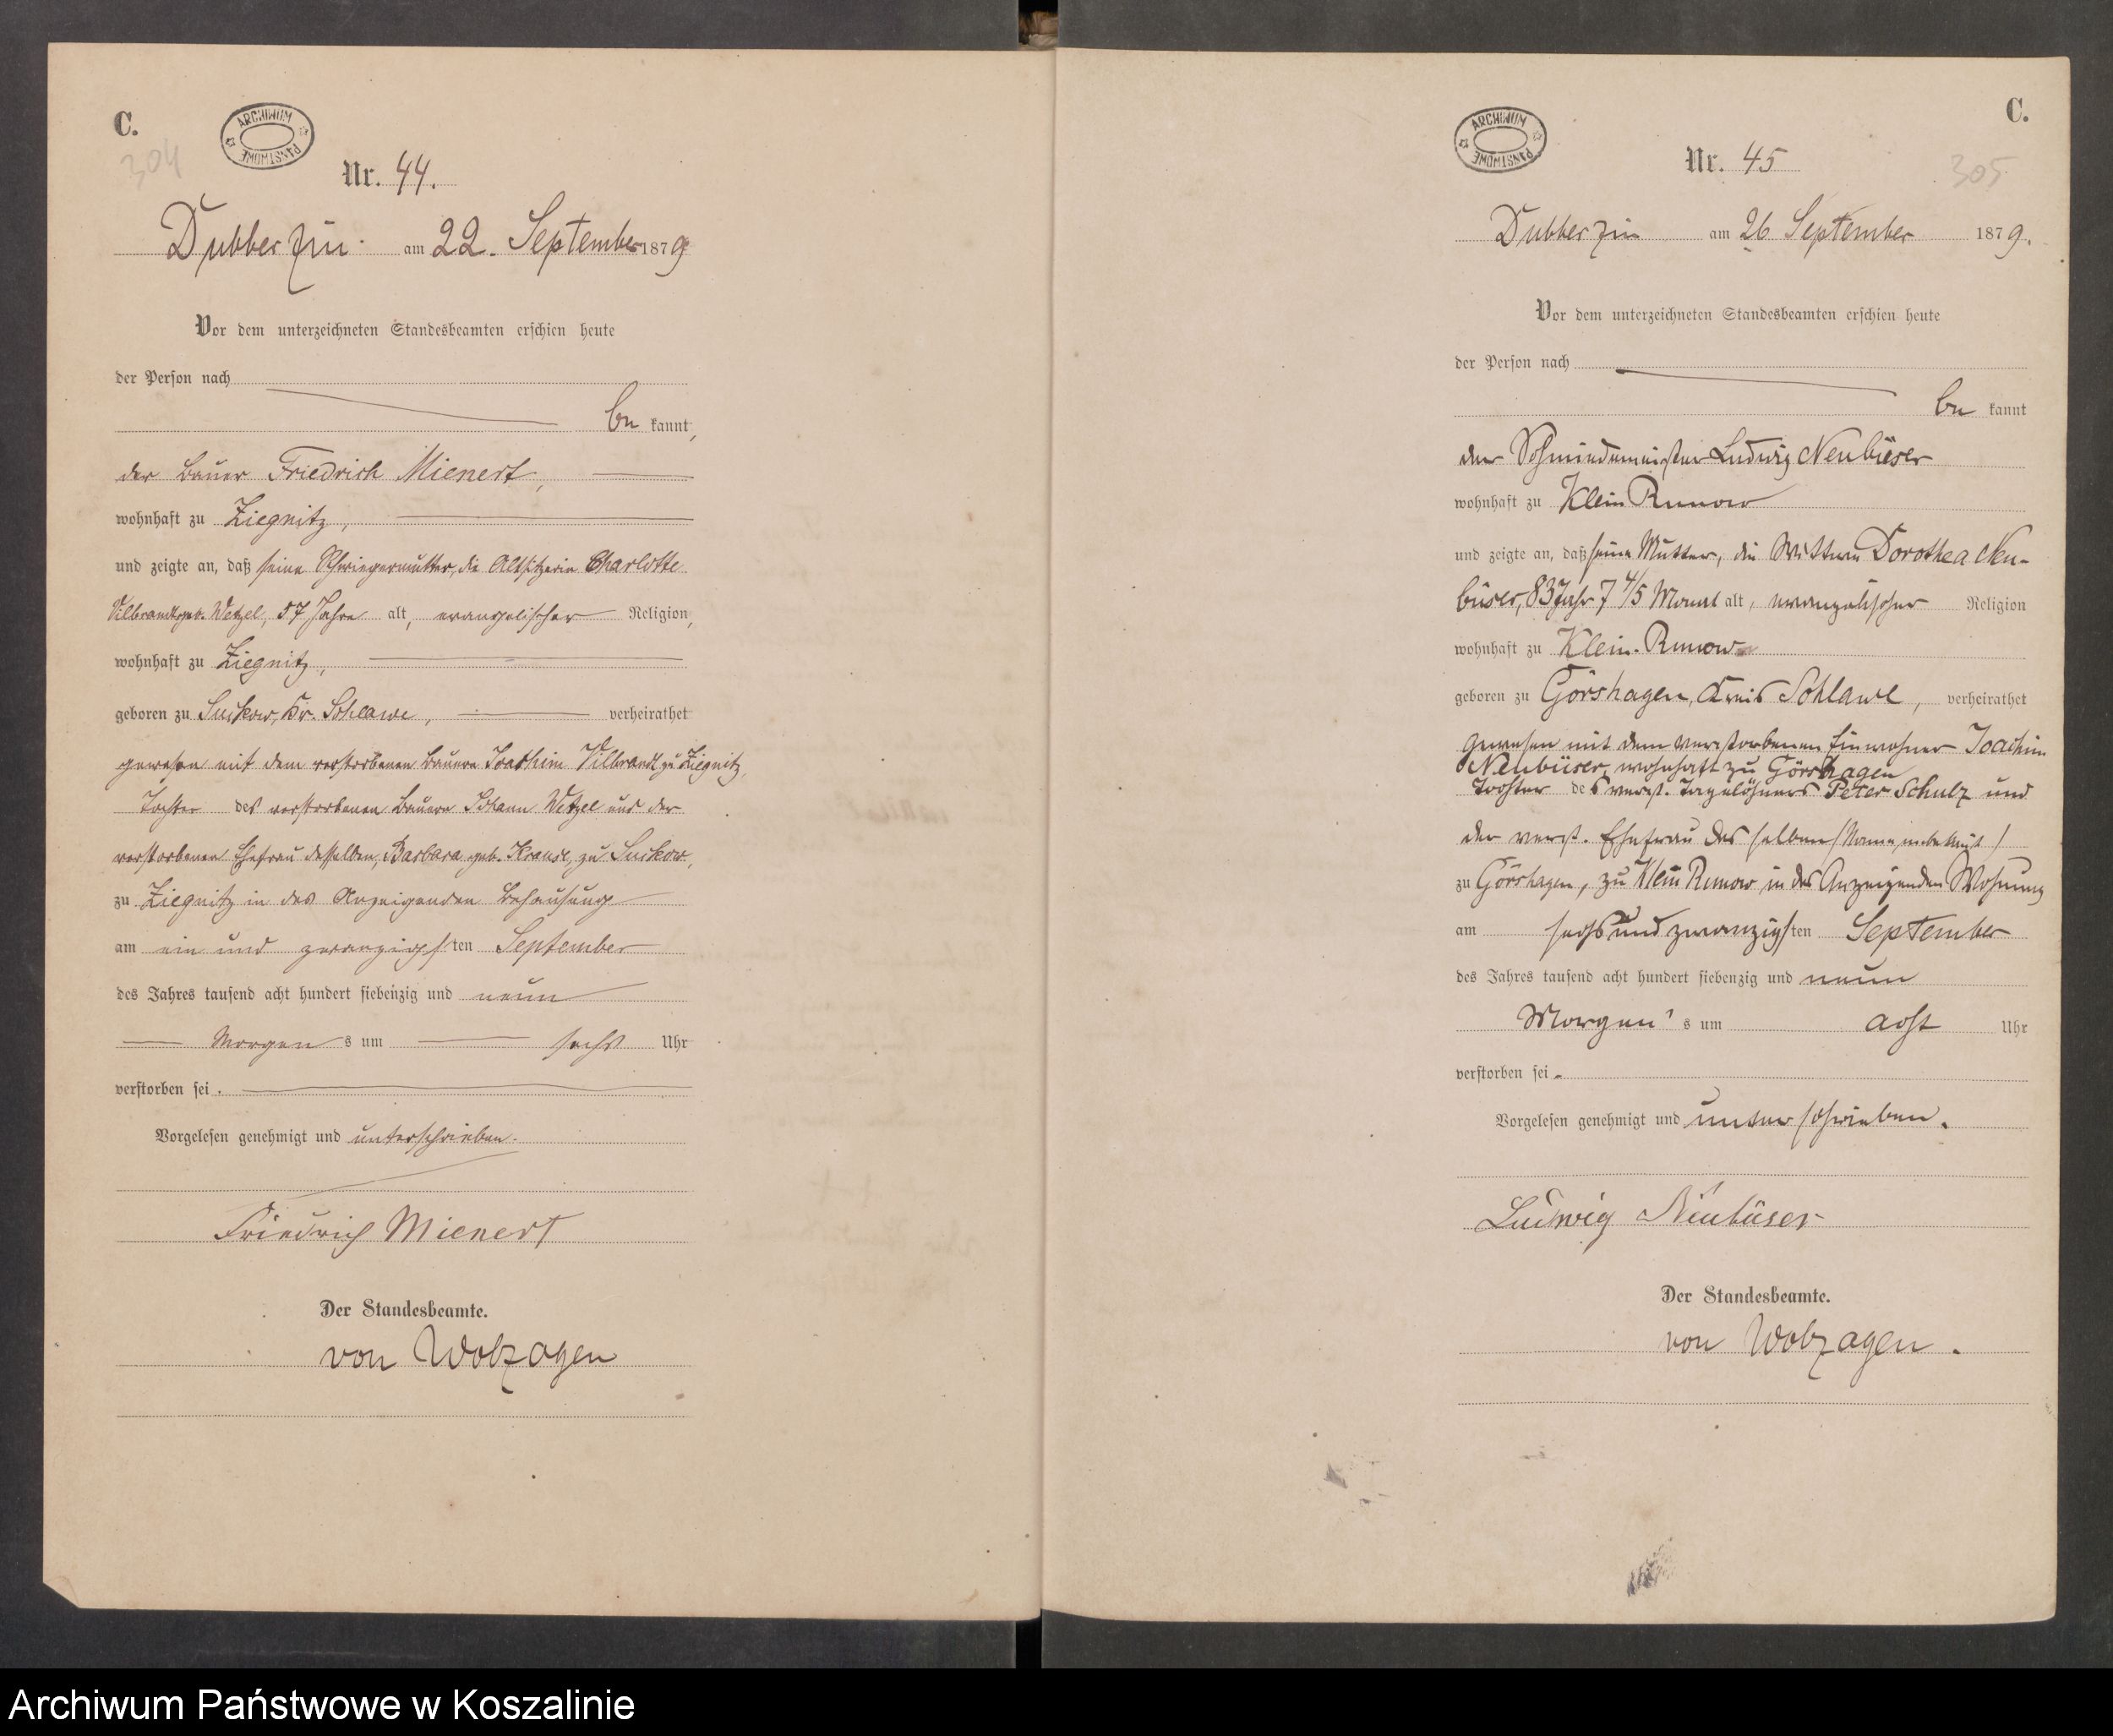 C.
ARCHIWUM PAŃSTWOWE
304
Nr. 44.
Dubberzin am 22. September 1879
Vor dem unterzeichneten Standesbeamten erschien heute
der Person nach
be kannt,
der Bauer Friedrich Mienert,
wohnhaft zu Ziegnitz,
und zeigte an, daß seine Schwiegermutter, die Altsitzerin Charlotte
Vilbrandt geb. Wetzel, 57 Jahre alt, evangelischer Religion,
wohnhaft zu Ziegnitz,
geboren zu Suckow, Kr. Schlawe, verheirathet
gewesen mit dem verstorbenen Bauern Joachim Vilbrandt zu Ziegnitz,
Tochter des verstorbenen Bauern Johann Wetzel und der
verstorbenen Ehefrau desselben, Barbara geb. Krause, zu Suckow,
zu Ziegnitz in des Anzeigenden Behausung
am ein und zwanzigsten September
des Jahres tausend acht hundert siebenzig und neun
Morgen s um sechs Uhr
verstorben sei.
Vorgelesen genehmigt und unterschrieben.
Friedrich Mienert
Der Standesbeamte.
von Wolzogen
C.
ARCHIWUM PAŃSTWOWE
305
Nr. 45
Dubberzin am 26 September 1879.
Vor dem unterzeichneten Standesbeamten erschien heute
der Person nach
be kannt
der Schmiedemeister Ludwig Neubüser
wohnhaft zu Klein Runow
und zeigte an, daß seine Mutter, die Wittwe Dorothea Neu-
büser, 83 Jahr 7 4/5 Monat alt, evangelischer Religion
wohnhaft zu Klein-Runow
geboren zu Görshagen, Kreis Schlawe, verheirathet
gewesen mit dem verstorbenen Einwohner Joachim
Neubüser, wohnhaft zu Görshagen
Tochter des verst. Tagelöhners Peter Schulz und
der verst. Ehefrau des selben /Name unbekannt/
zu Görshagen, zu Klein Runow in des Anzeigenden Wohnung
am sechsundzwanzigsten September
des Jahres tausend acht hundert siebenzig und neun
Morgen's um acht Uhr
verstorben sei.
Vorgelesen genehmigt und unterschrieben.
Ludwig Neubüser
Der Standesbeamte.
von Wolzogen.
Archiwum Państwowe w Koszalinie